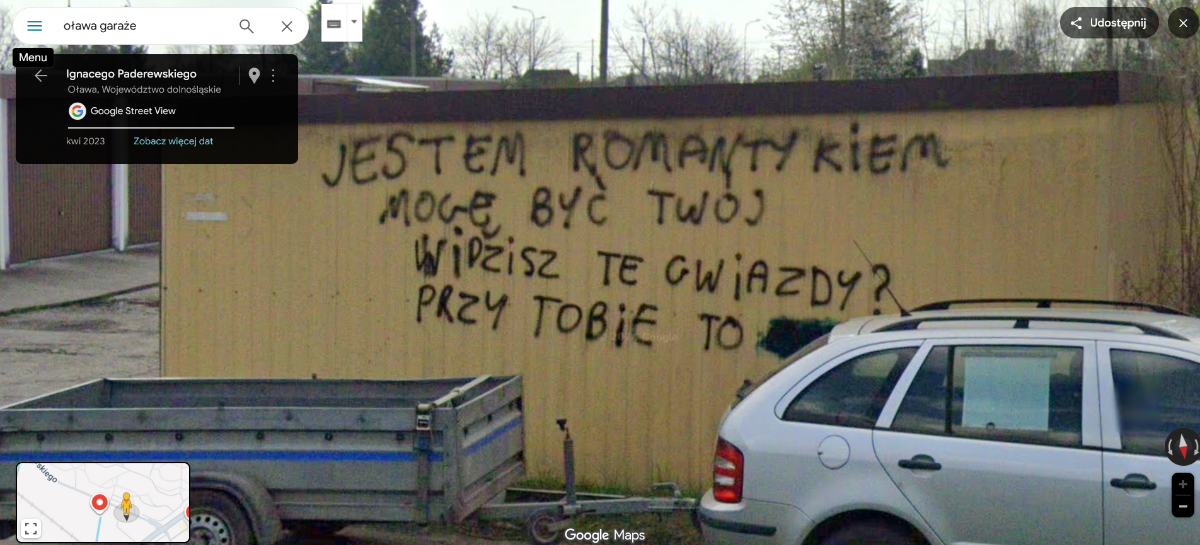 oława garaże
Udostępnij
Menu
Ignacego Paderewskiego
Oława, Województwo dolnośląskie
Google Street View
kwi 2023
Zobacz więcej dat
JESTEM ROMANTYKIEM
MOGĘ BYĆ TWÓJ
WiDZiSZ TE GWiAZDY?
PRZY TOBiE TO
skiego
Google Maps